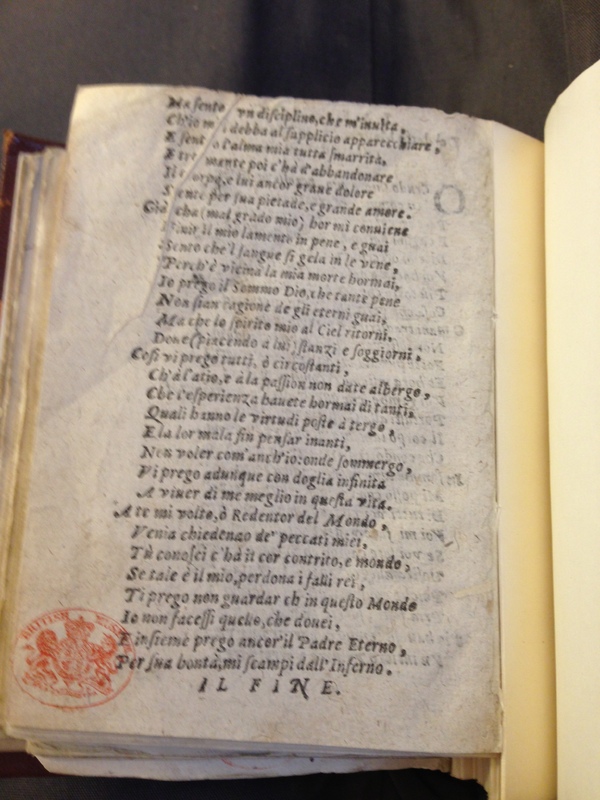 Ma sento vn disciplino, che m'inuita,
Ch'io mi debba al supplicio apparecchiare,
E sento l'alma mia tutta smarrita,
E tremante poi c'hà d'abbandonare
Il corpo, e lui ancor graue dolore
Sente per sua pietade, e grande amore.
Già cha (mal grado mio) hor mi conuiene
Finir il mio lamento in pene, e guai
Sento che'l sangue si gela in le vene,
Perch'è vicina la mia morte hormai,
Io prego il Sommo Dio, che tante pene
Non sian cagione de gli eterni guai,
Ma che lo spirito mio al Ciel ritorni,
Doue (piacendo a lui) stanzi e soggiorni,
Cosi vi prego tutti, ò circostanti,
Ch'à l'atio, e à la passion non date albergo,
Che l'esperienza hauete hormai di tanti,
Quali hanno le virtudi poste à tergo,
E la lor mala fin pensar inanti,
Non voler com'anch'io: onde sommergo,
Vi prego adunque con doglia infinita
A viuer di me meglio in questa vita.
A te mi volto, ò Redentor del Mondo,
Venia chiedendo de' peccati miei,
Tù conosci c'hà il cor contrito, e mondo,
Se tale è il mio, perdona i falli rei,
Ti prego non guardar ch in questo Mondo
Io non facessi quello, che douei,
E insieme prego ancor'il Padre Eterno,
Per sua bontà, mi scampi dall'Inferno.
IL FINE.
BRITISH